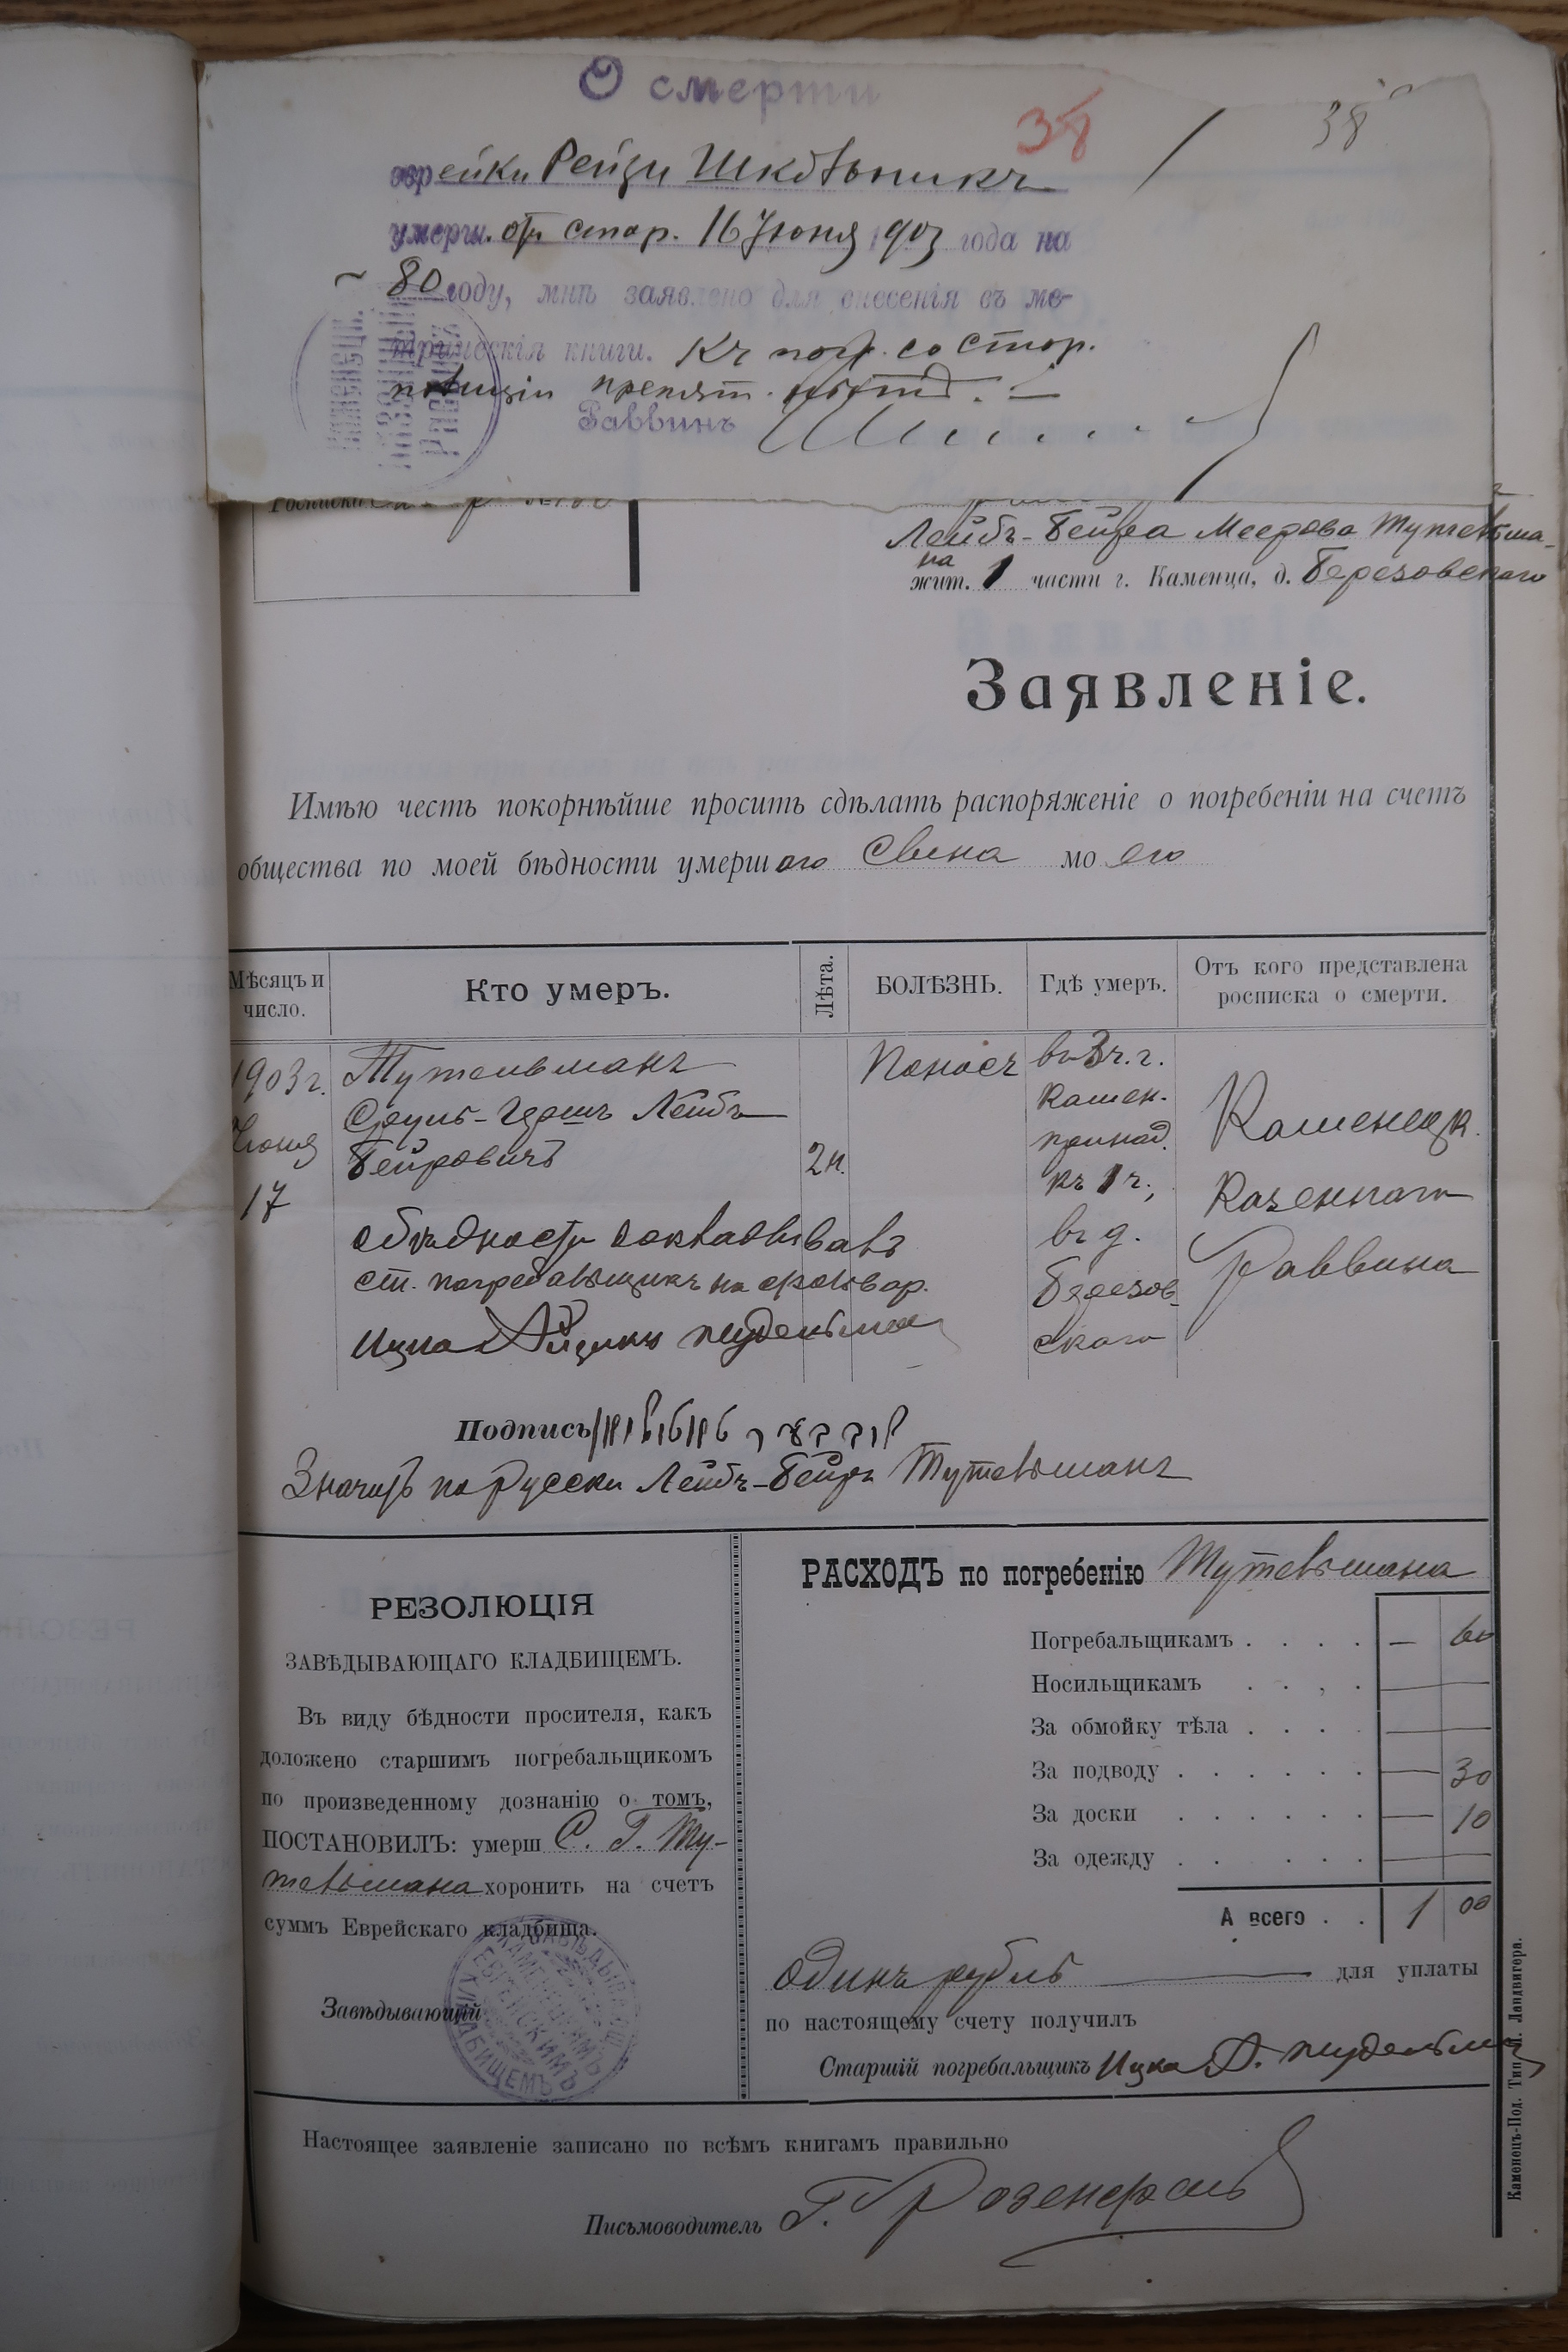 О смерти
38 38
еврейки Рейзи Школьникъ
умерш. отъ стар. 16 Іюня 1903 года на
80 году, мнѣ заявлено для внесенія въ ме-
трическія книги. Къ погр. со стор.
полиціи препят. нѣтъ.
Раввинъ
Росписка
Лейбъ-Бейра Меерова Тутельма-
на
жит. 1 части г. Каменца, д. Березовскаго
Заявленіе.
Имѣю честь покорнѣйше просить сдѣлать распоряженіе о погребеніи на счетъ
общества по моей бѣдности умершаго сына моего
Мѣсяцъ и число. Кто умеръ. Лѣта. БОЛѢЗНЬ. Гдѣ умеръ. Отъ кого представлена росписка о смерти.
1903 г. Тутельманъ Поносъ въ 3 ч. г.
Іюня Сруль-Гершъ Лейбъ Камен. Каменецк.
Бейровичъ 2 н. принад.
17 къ 1 ч., Казеннаго
о бѣдности докладывалъ въ д. Раввина
ст. погребальщикъ Березов-
Ицко скаго
Подпись
Значитъ по Русски Лейбъ-Бейра Тутельманъ
РЕЗОЛЮЦІЯ
ЗАВѢДЫВАЮЩАГО КЛАДБИЩЕМЪ.
Въ виду бѣдности просителя, какъ
доложено старшимъ погребальщикомъ
по произведенному дознанію о томъ,
ПОСТАНОВИЛЪ: умерш С. Г. Ту-
тельмана хоронить на счетъ
суммъ Еврейскаго кладбища.
Завѣдывающій
ЗАВѢДЫВАЮЩ. КАМЕНЕЦКИМЪ ЕВРЕЙСКИМЪ КЛАДБИЩЕМЪ
РАСХОДЪ по погребенію Тутельмана
Погребальщикамъ . . . . — 60
Носильщикамъ . . . . —
За обмойку тѣла . . . . —
За подводу . . . . . . — 30
За доски . . . . . . — 10
За одежду . . . . . . —
А всего . . 1 00
Одинъ рубль для уплаты
по настоящему счету получилъ
Старшій погребальщикъ Ицко
Настоящее заявленіе записано по всѣмъ книгамъ правильно
Письмоводитель Г. Розенфель
Каменецъ-Под. Тип. Ландвигера.